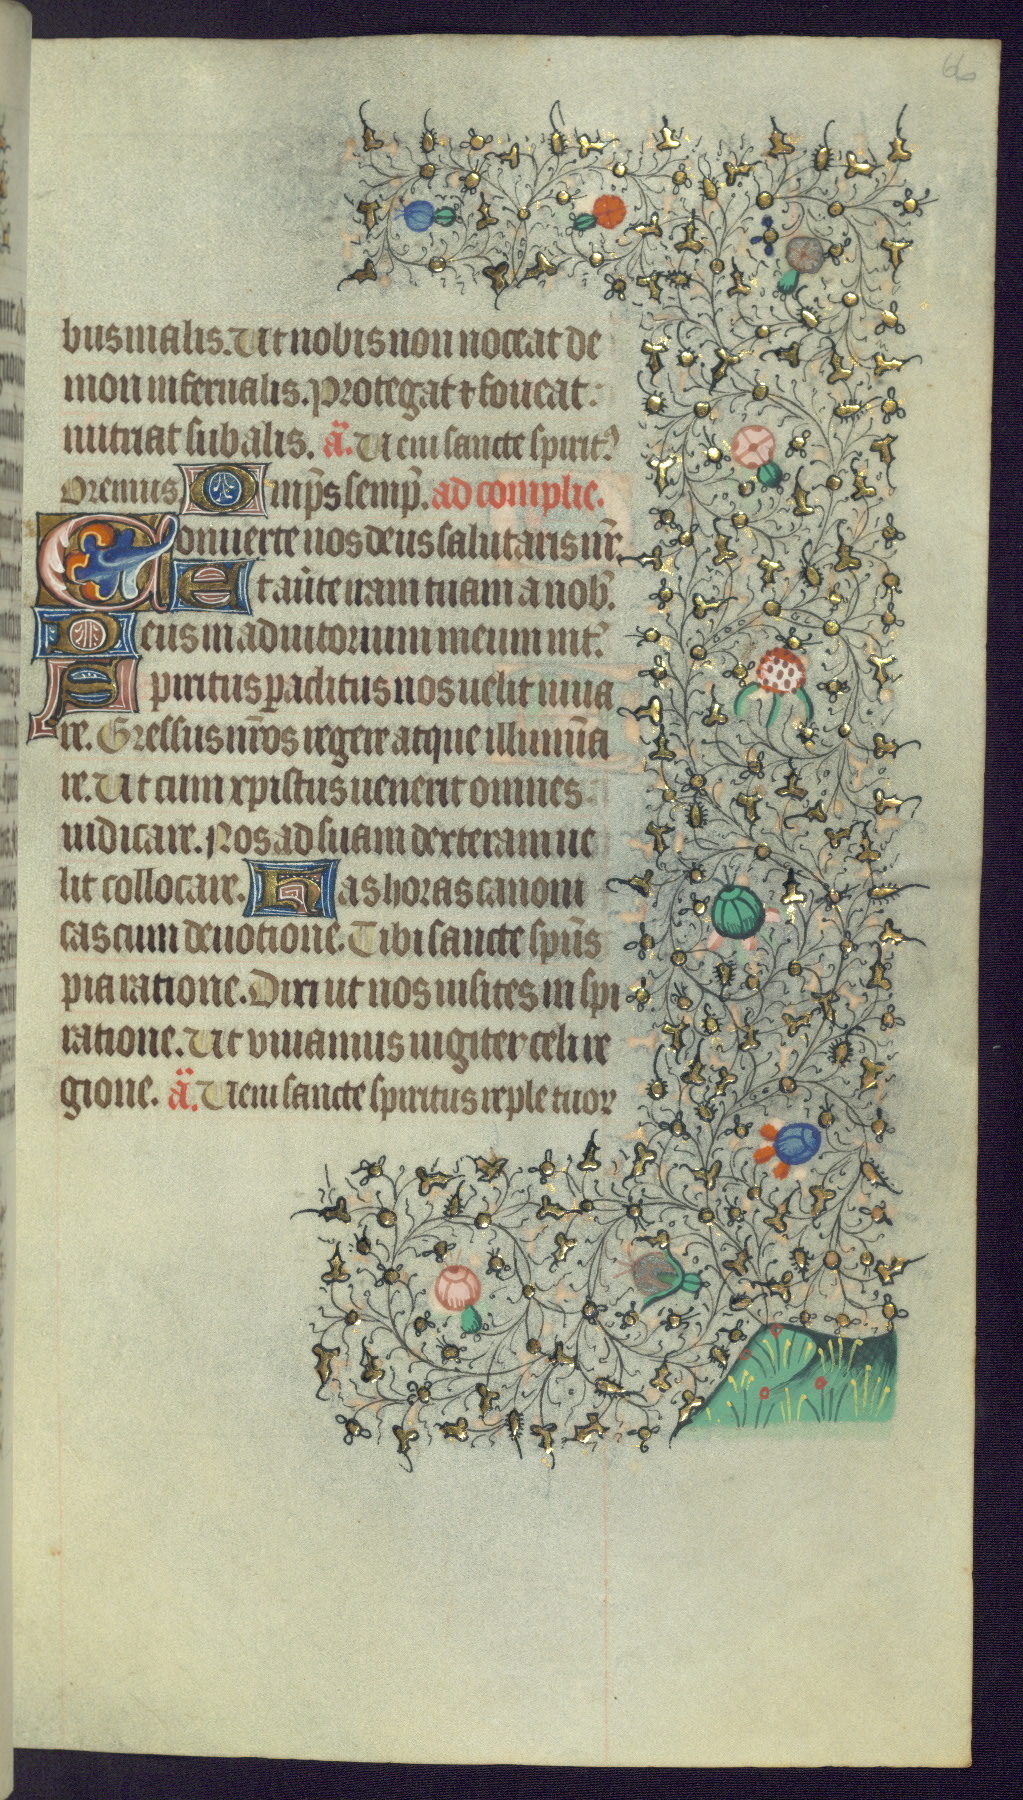 66
bus malis. Ut nobis non noceat de
mon infernalis. Protegat ⁊ foueat
nutriat sub alis. ā. Ueni sancte spiritꝰ
Oremus. Omp̄s semp̄. ad complie.
Conuerte nos deus salutaris nr̄.
Et au̅te iram tuam a nob̄.
Deus in adiutorium meum int̄.
Spiritus paclitus nos uelit iuua
re. Gressus nr̄os regere atque illumīa
re. Ut cum xpistus uenerit omnes
iudicare. Nos ad suam dexteram ue
lit collocare. Has horas canoni
cas cum deuotione. Tibi sancte sp̄us
pia ratione. Dixi ut nos uisites in spi
ratione. Ut viuamus iugiter celi re
gione. ā. Ueni sancte spiritus reple tuor